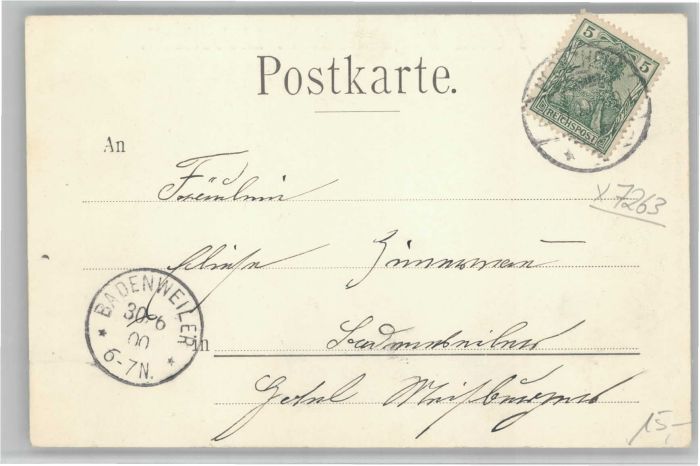 Postkarte.
5 5
REICHSPOST
An
Fräulein
x 7263
Elise Zimmermann
BADENWEILER
30 6
00
6-7N.
in Badenweiler
Hotel Meißburger
15,-